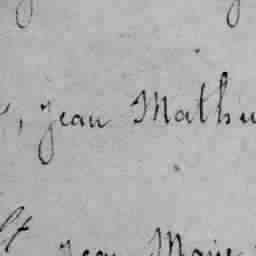 , Jean Mathu
Jean Marie